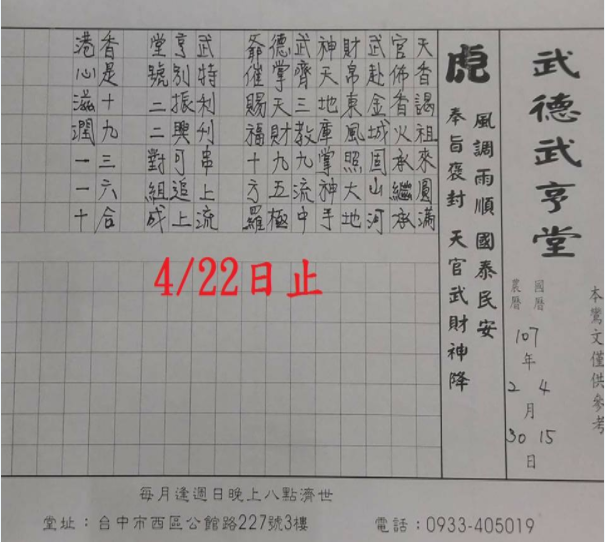 本鸞文僅供參考
武德武亨堂
國曆 107年4月15日
農曆 2月30日
風調雨順 國泰民安
虎 奉旨褒封 天官武財神降
天香謁祖來圓滿
官佛香火承繼承
武赴金城固山河
財帛東風照大地
神天地庫掌神手
武齊三教九流中
德掌天財九五極
爺催賜福十方羅
武特利利串上流
亨別振興可追上
堂號二二對組成
香是十九三六合
港心滋潤一一十
4/22日止
每月逢週日晚上八點濟世
堂址：台中市西區公館路227號3樓
電話：0933-405019